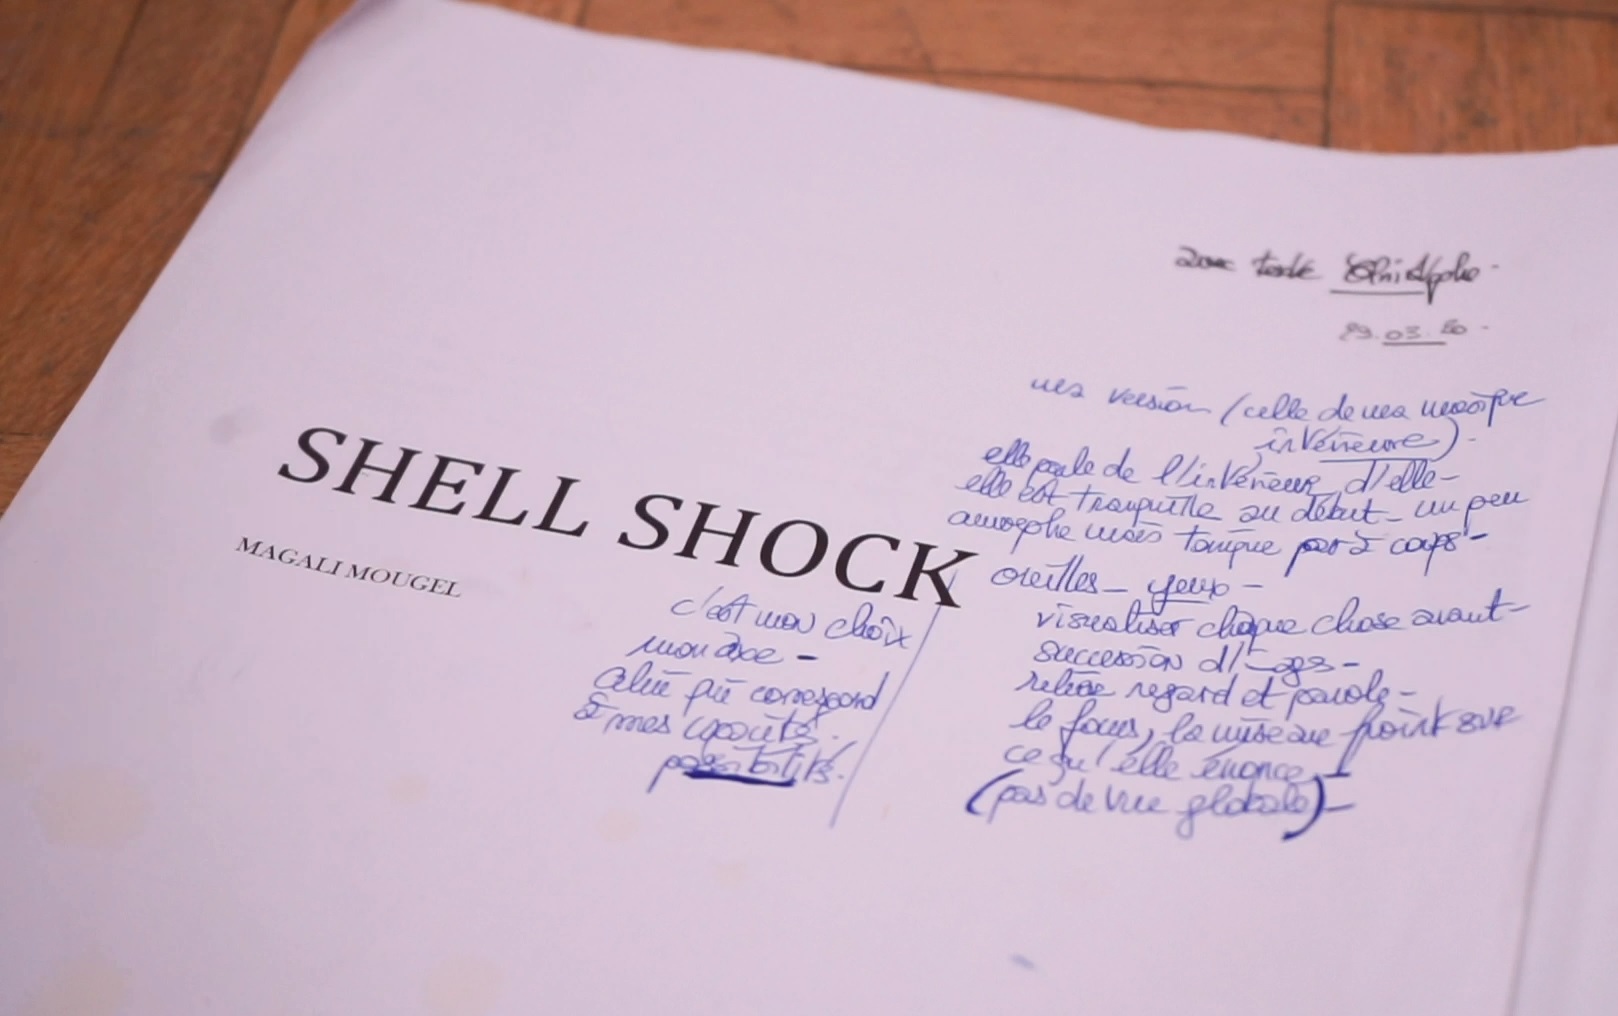 Christophe
03
ma version (celle de ma musique
intérieure).
elle parle de l'intérieur d'elle-
elle est tranquille au début - un peu
amorphe mais tonique par à coups -
SHELL SHOCK
MAGALI MOUGEL
oreilles - yeux -
visualiser chaque chose avant -
succession d'
relier regard et parole -
le focus, la mise au point sur
ce qu'elle énonce
(pas de vue globale) -
c'est mon choix
mon axe -
celui qui correspond
à mes capacités.
possibilités.